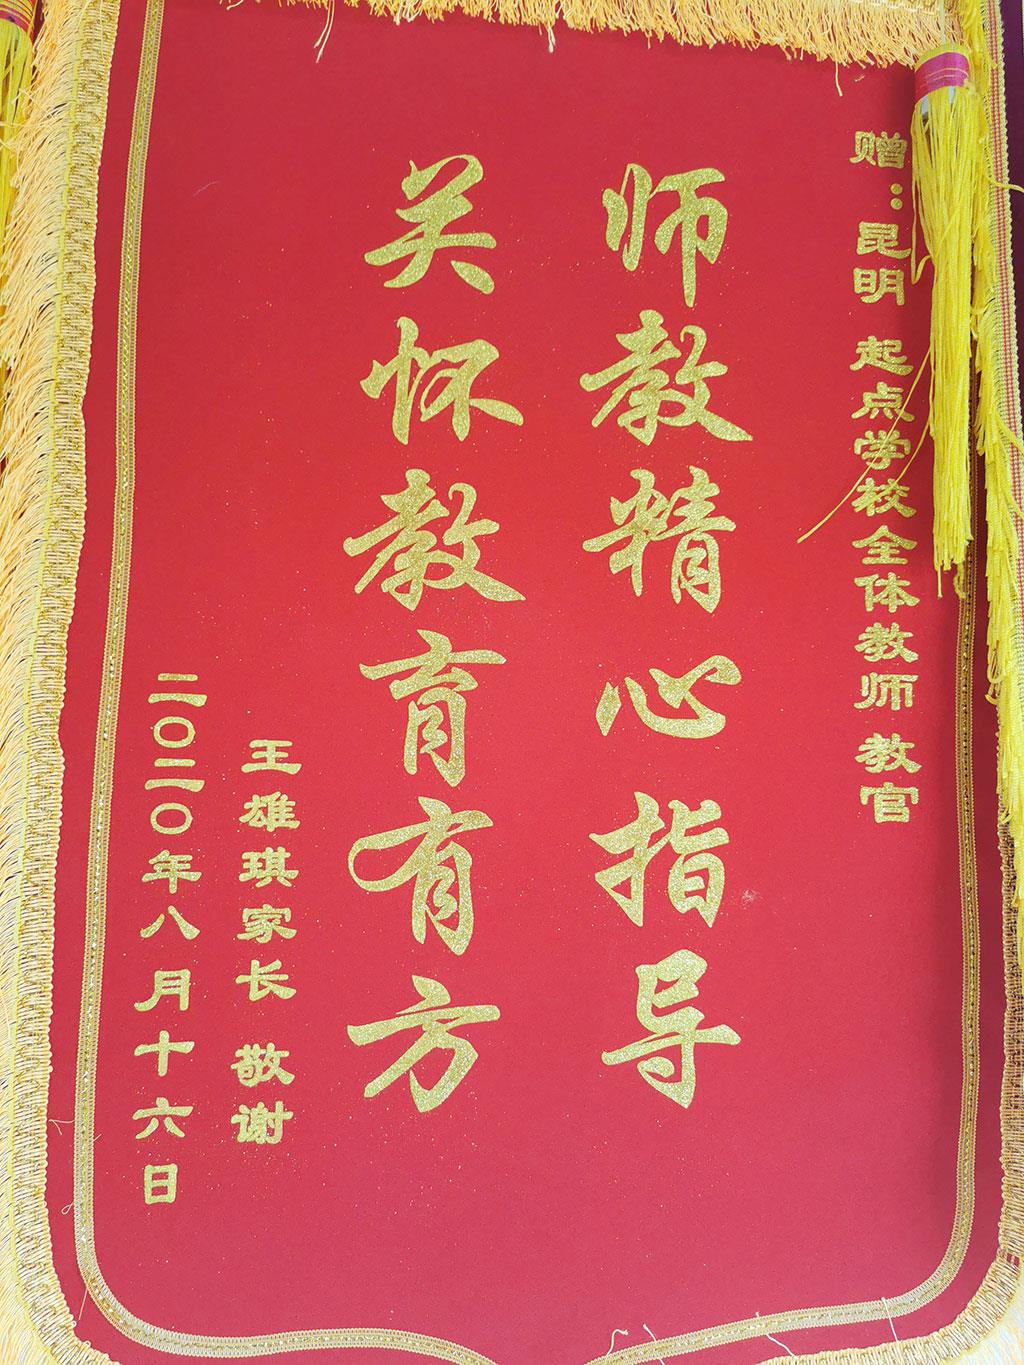 赠：昆明 起点学校全体教师 教官
师教精心指导
关怀教育有方
王雄琪家长 敬谢
二〇二〇年八月十六日